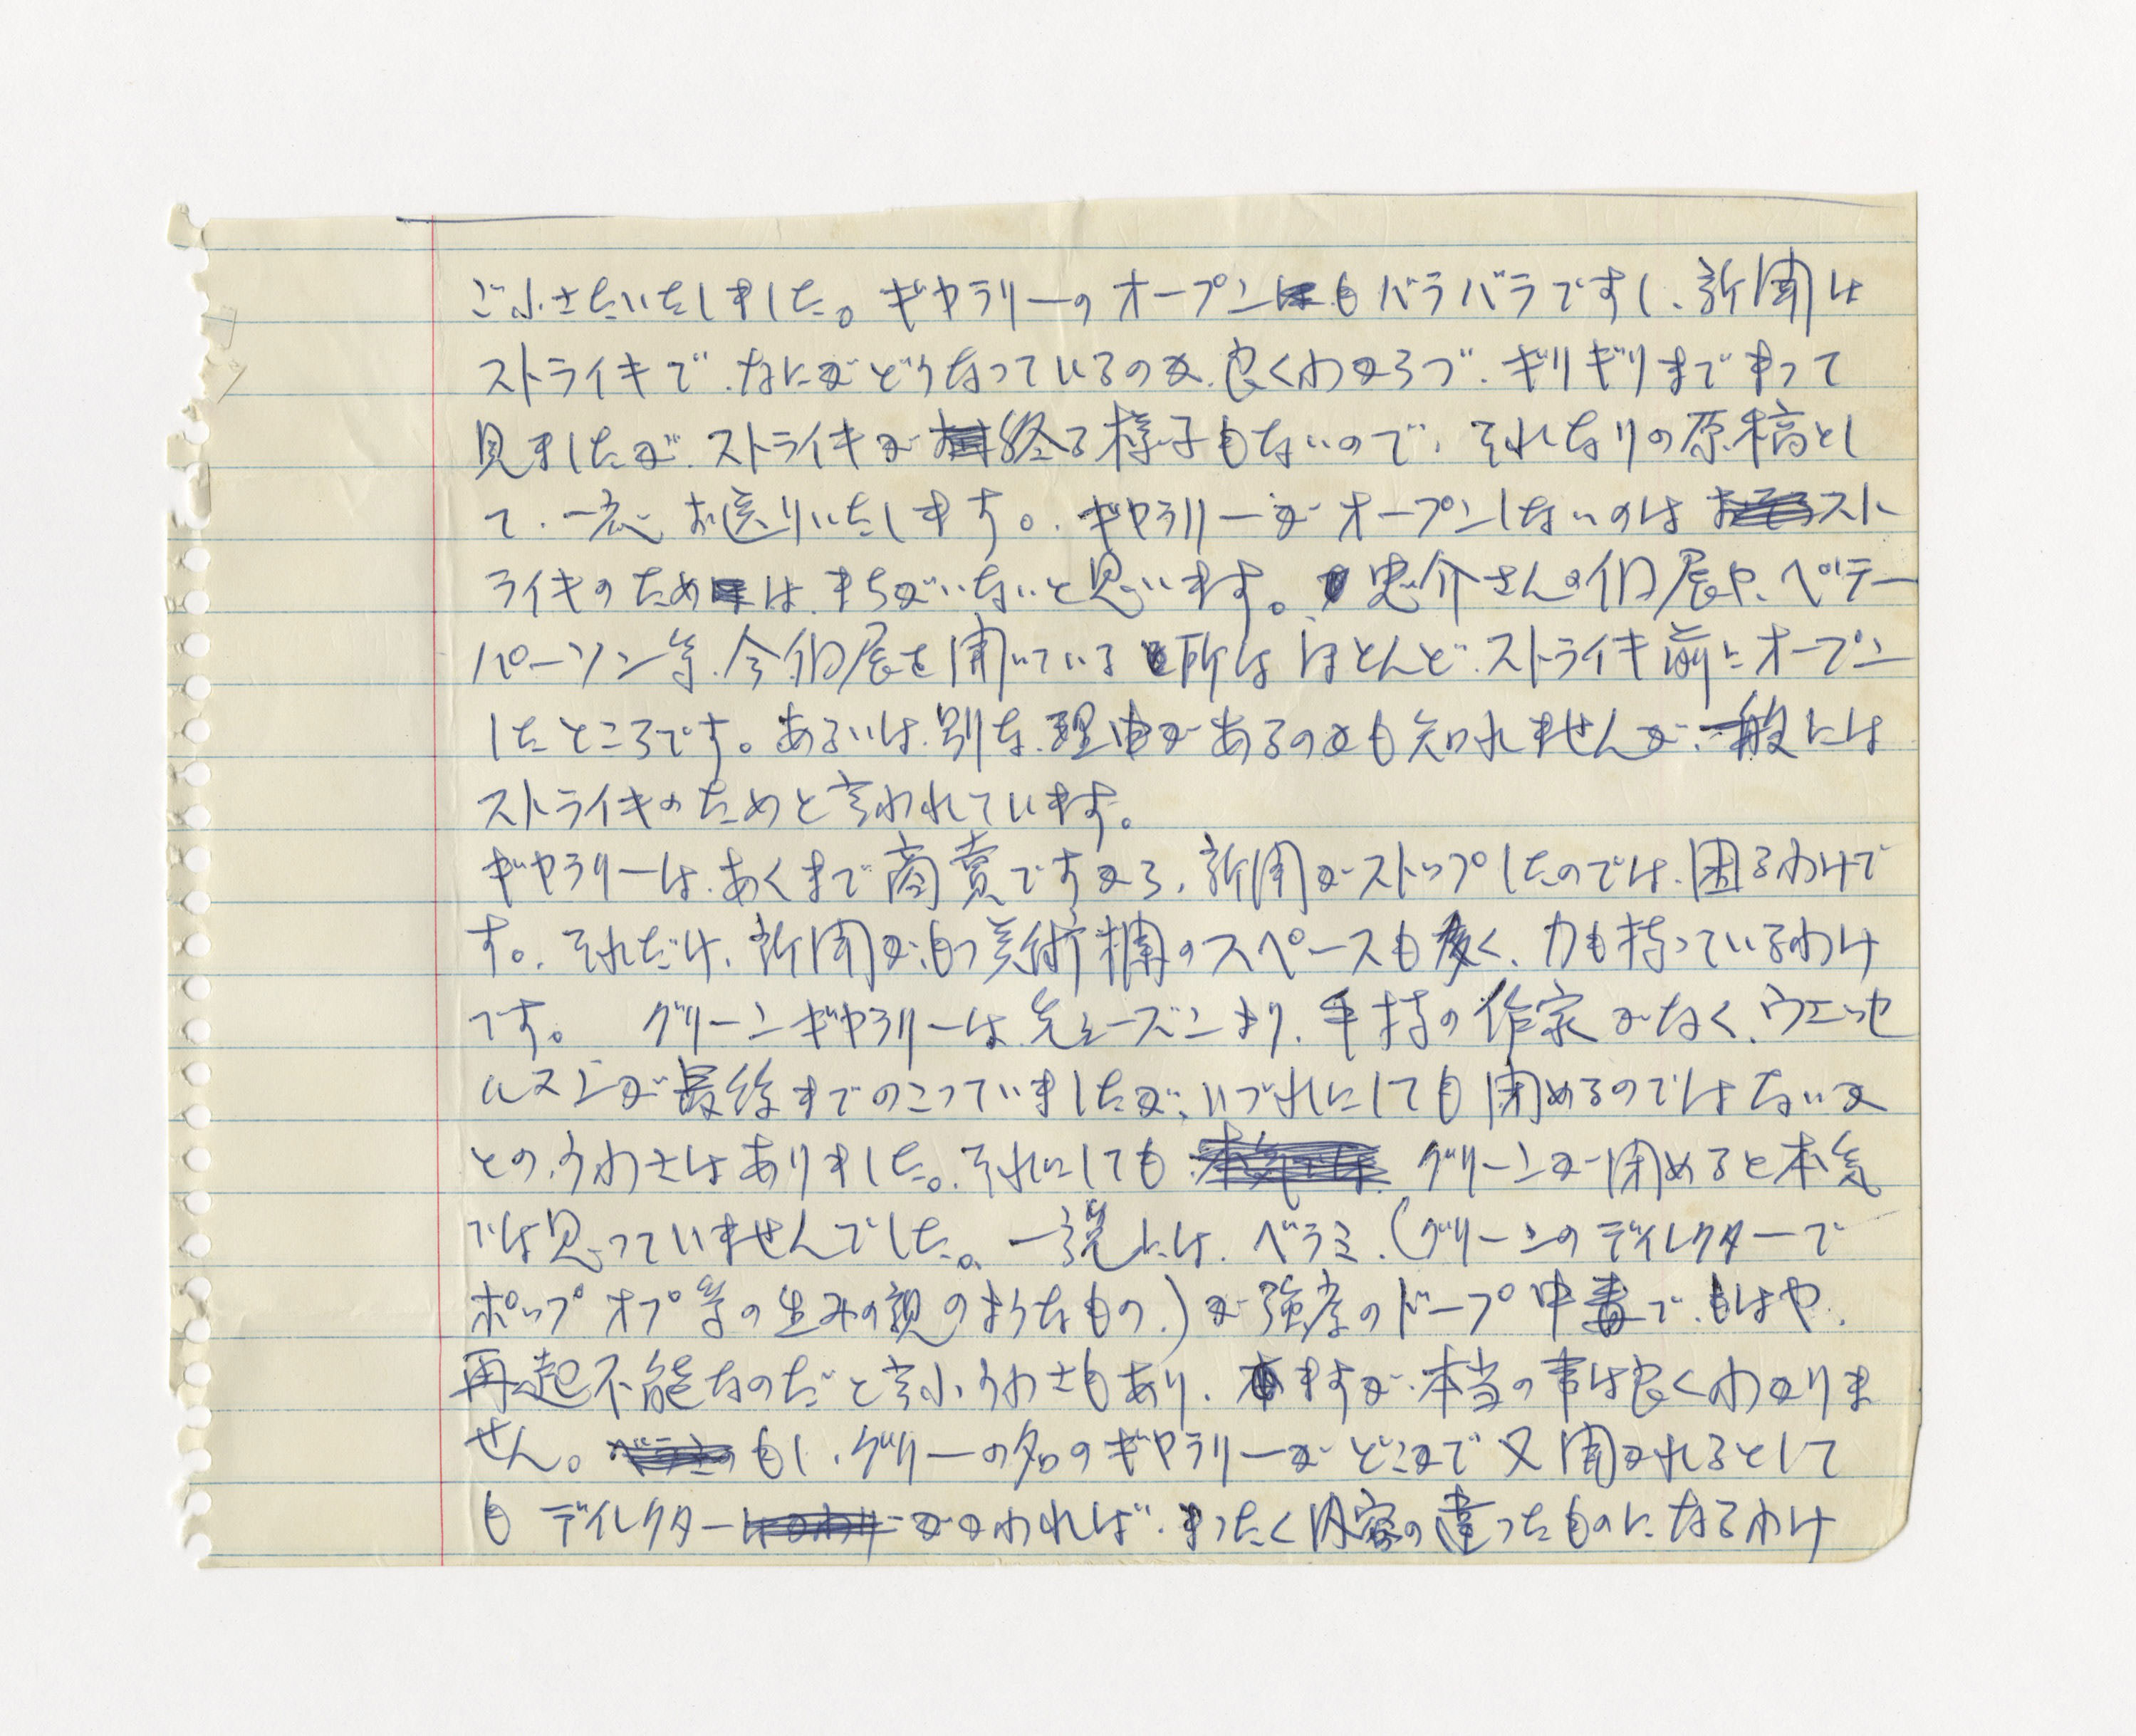 ごぶさたいたしました。ギャラリーのオープンもバラバラですし、新聞は
ストライキで、なにがどうなっているのか、良くわからづ、ギリギリまでまって
見ましたが、ストライキが終る様子もないので、それなりの原稿とし
て、一応、お送りいたします。ギャラリーがオープンしないのはスト
ライキのためは、まちがいないと思います。忠介さんの個展や、ペテー
パーソン等、今、個展を開いている所はほとんど、ストライキ前にオープン
したところです。あるいは、別な、理由があるのかも知れませんが、一般には
ストライキのためと言われています。
ギャラリーは、あくまで商売ですから、新聞がストップしたのでは、困るわけで
す。それだけ、新聞がもつ美術欄のスペースも多く、力も持っているわけ
です。 グリーンギャラリーは先シーズンより、手持の作家がなく、ウエッセ
ルマンが最後までのこっていましたが、いづれにしても閉めるのではないか
との、うわさはありました。それにしても グリーンが閉めると本気
では思っていませんでした。一説には、ベラミ、(グリーンのディレクターで
ポップ オプ等の生みの親のようなもの、)が強度のドープ中毒で、もはや、
再起不能なのだと言ふうわさもあり、ますが、本当の事は良くわかりま
せん。もし、グリーの名のギャラリーがどこかで又開かれるとして
も ディレクターがかわれば、まったく内容の違ったものになるわけ